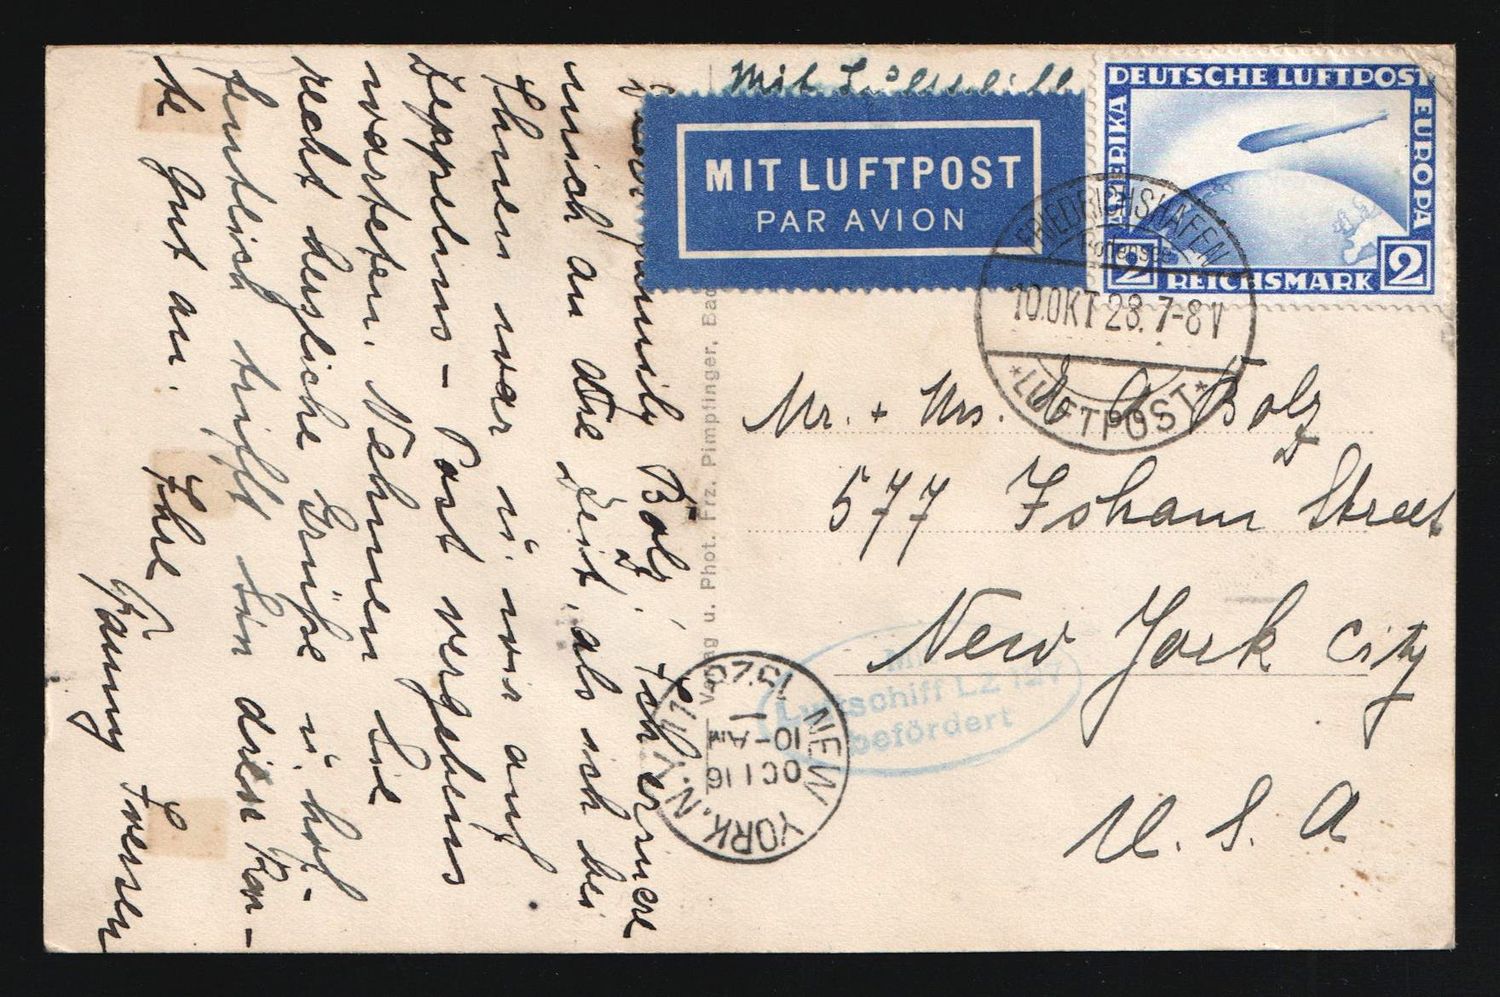 Mit Luftschiff
MIT LUFTPOST
PAR AVION
DEUTSCHE LUFTPOST
AMERIKA
EUROPA
2 REICHSMARK 2
FRIEDRICHSHAFEN
Bodensee
10.OKT 28. 7-8 V
*LUFTPOST*
Mr. + Mrs. Bolz
577 Isham Street
New York City
U. S. A
Mit
Luftschiff LZ 127
befördert
NEW YORK, N.Y.
OCT 16
10-AM
Verlag u. Phot. Frz. Pimpfinger, Bad
Family Bolz, Ich erinnere
mich an die Zeit, als ich bei
Ihnen war u. wir auf
Zeppelins-Post vergebens
warteten. Nehmen Sie
recht herzliche Grüße u. hof-
fentlich trifft Sie diese Kar-
te gut an.
Ihre
Fanny